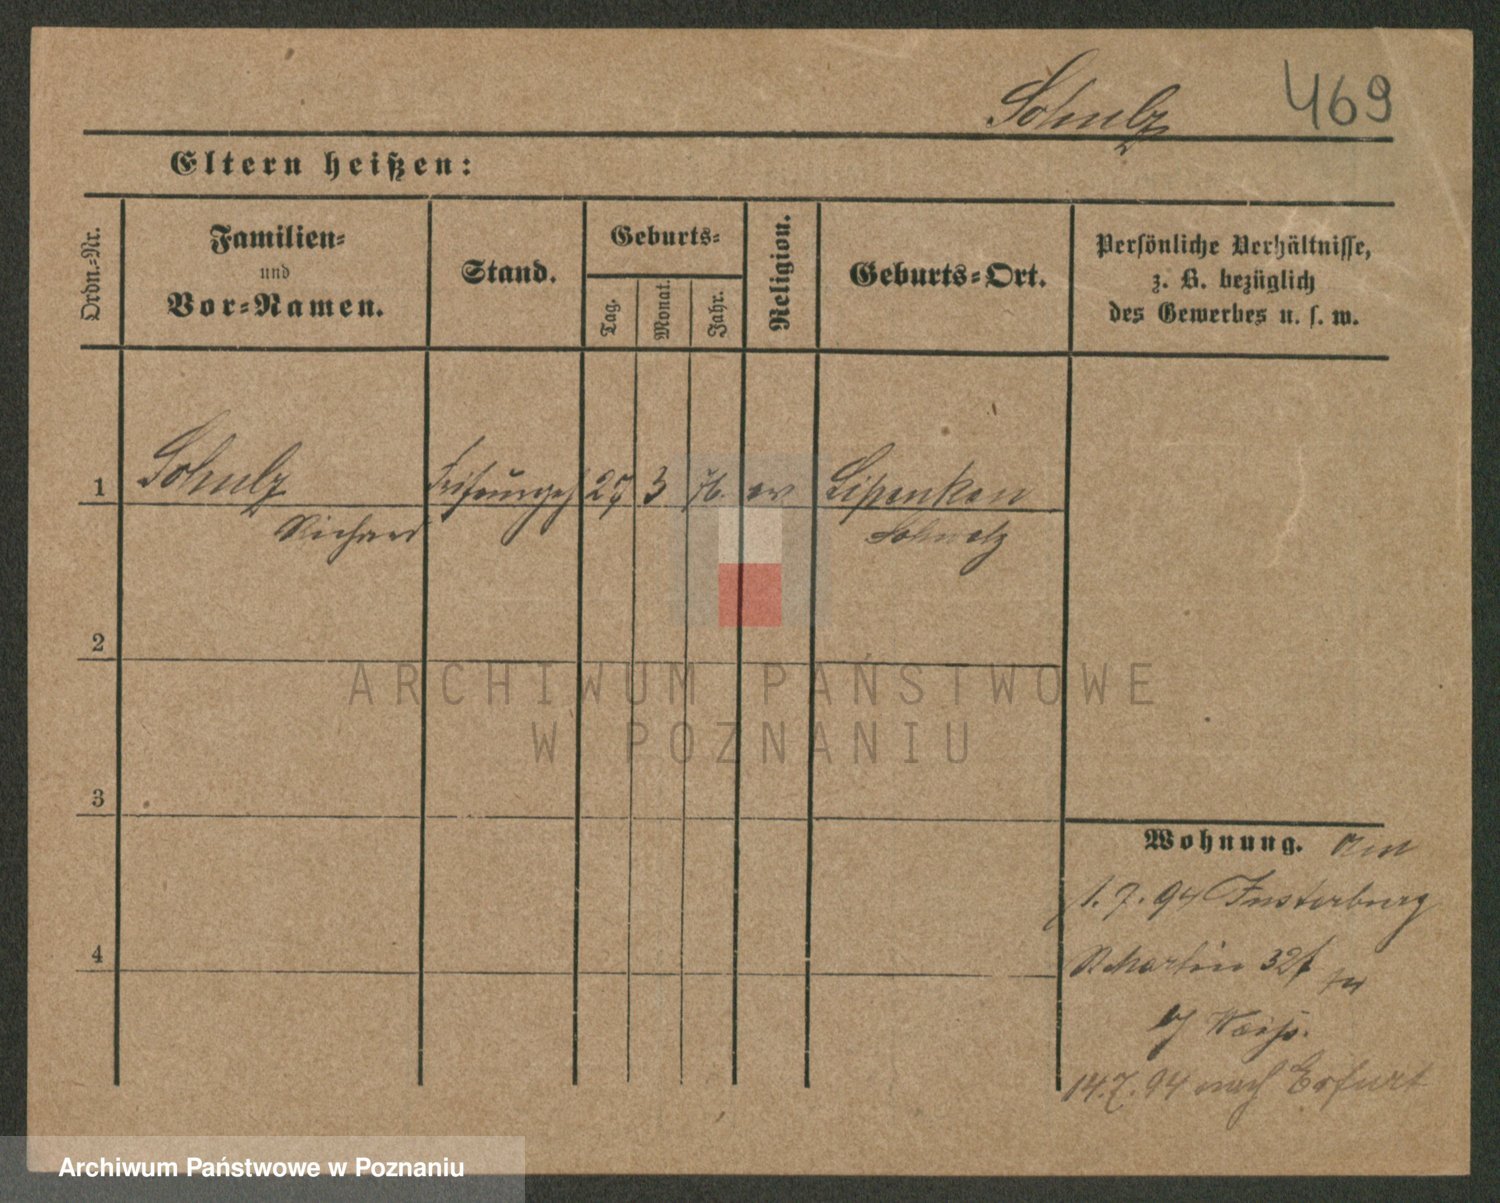 Schulz 469
Eltern heißen:
Ordn.-Nr.
Familien-
und
Vor-Namen.
Stand.
Geburts-
Tag.
Monat.
Jahr.
Religion.
Geburts-Ort.
Persönliche Verhältnisse,
z. B. bezüglich
des Gewerbes u. s. w.
1 Schulz Friseurgeh 27 3 76. ev Lipenken
Richard Schwetz
2
ARCHIWUM PAŃSTWOWE
W POZNANIU
3
Wohnung. Am
1.7.94 Insterburg
Martin 32
b/ Weiß.
14.7.94 nach Erfurt
4
Archiwum Państwowe w Poznaniu